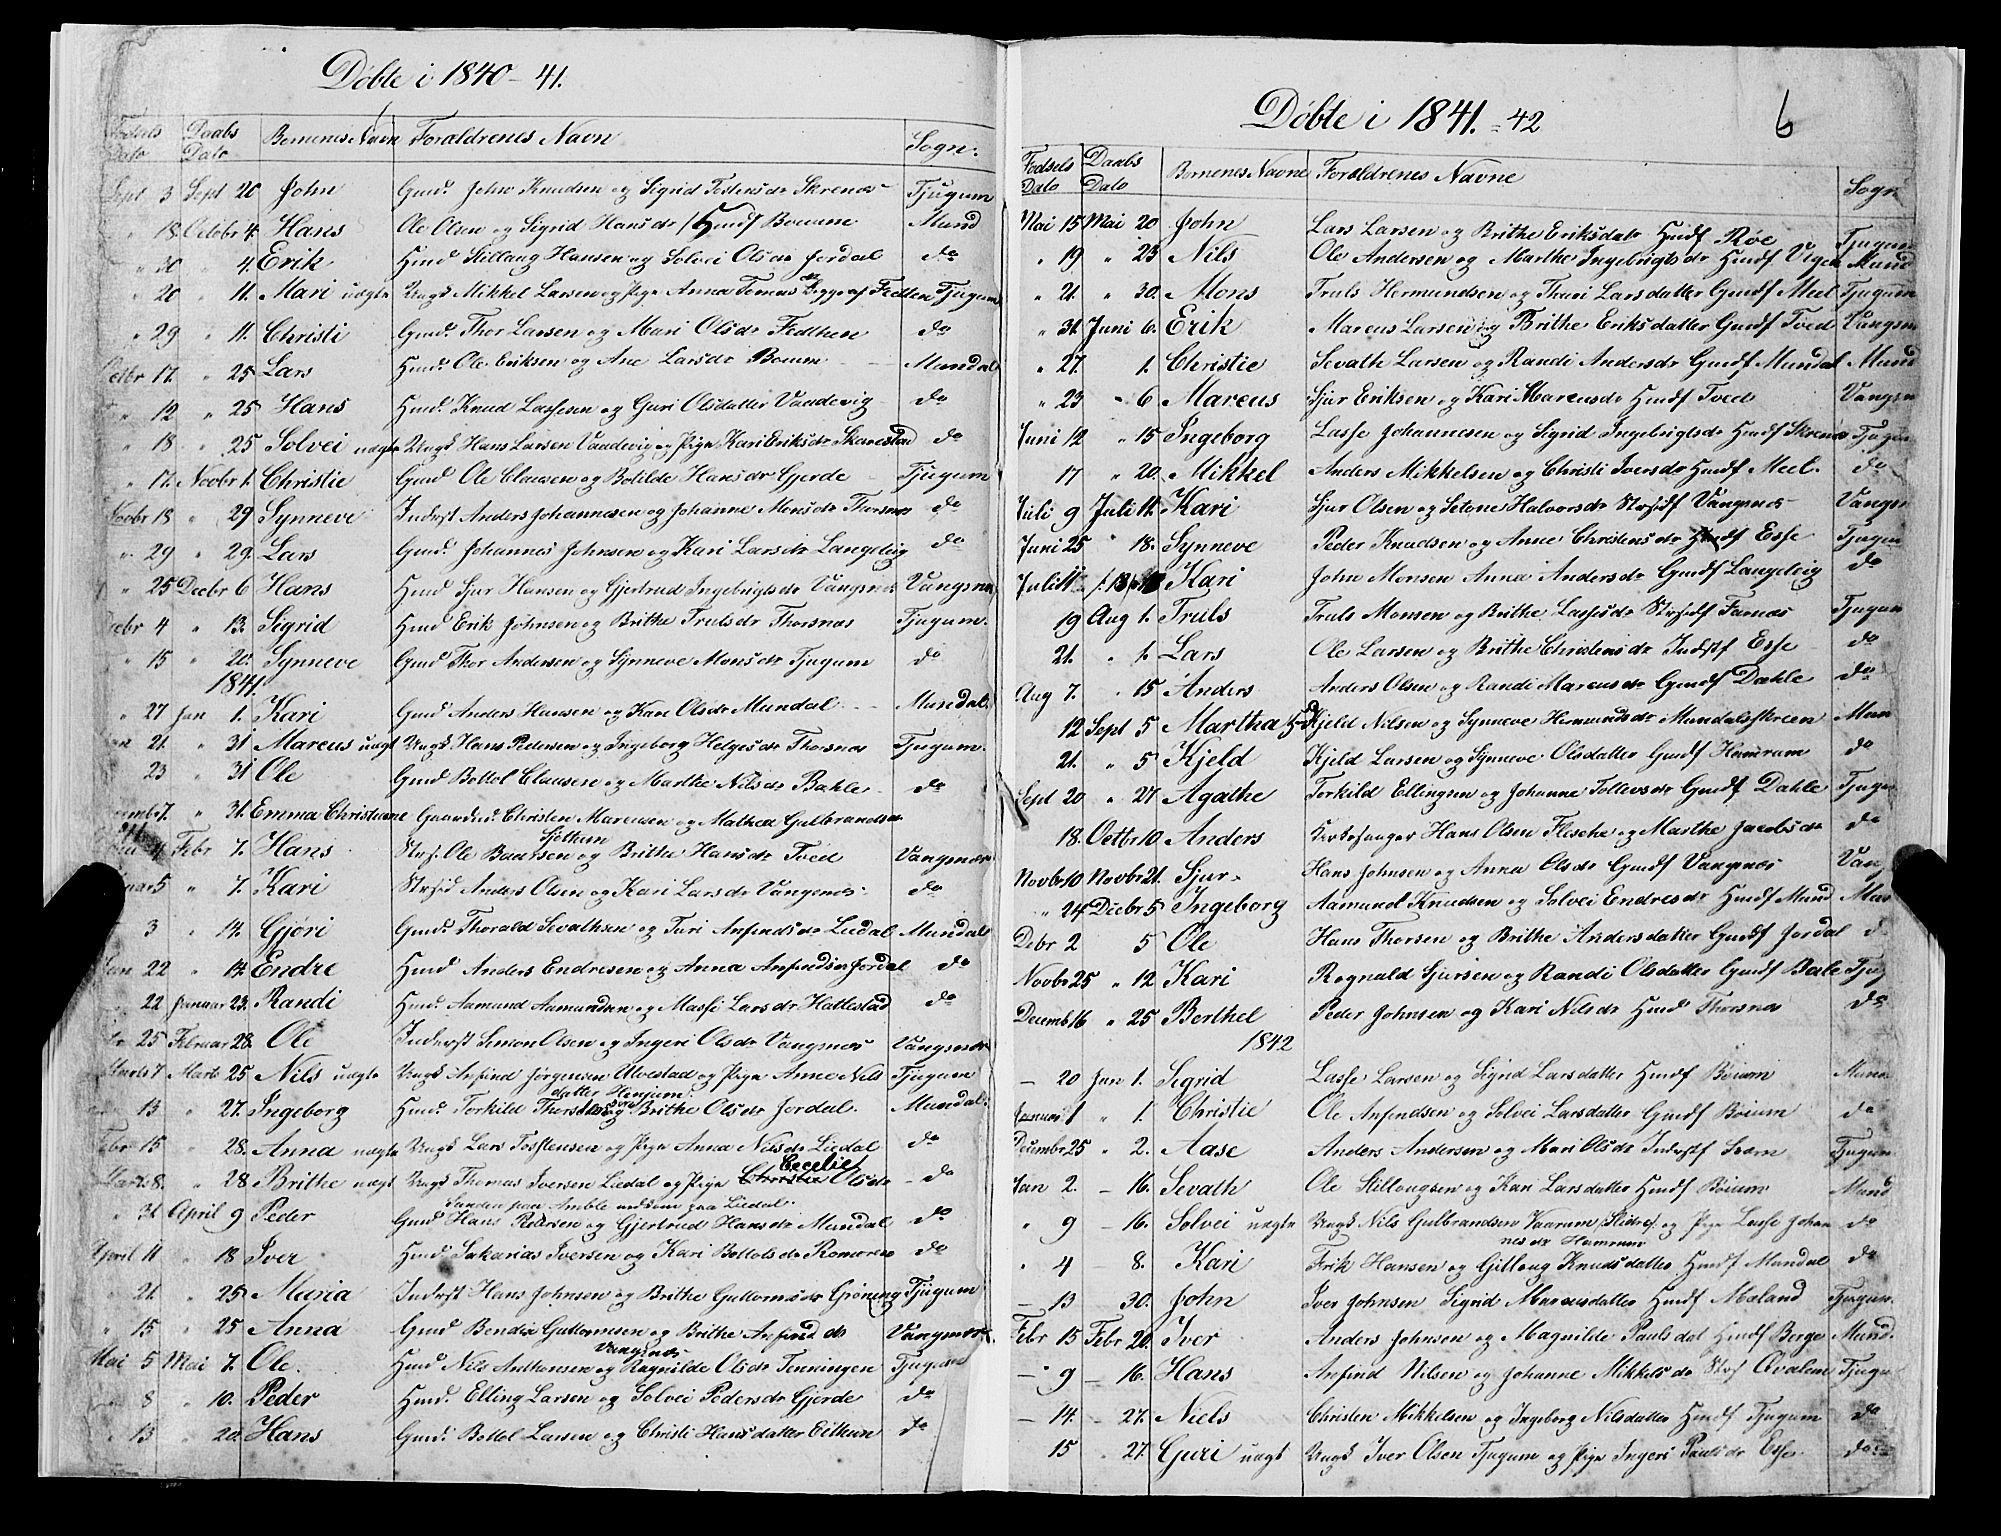 Døbte i 1840-41.
Fødsels Dato Daabs Dato Børnenes Navn Forældrenes Navn Sogn.
Sept 3 Sept 20 John Gmd. John Knudsen og Sigrid Skrenæs Tjugum
" 18. Octobr 4. Hans Ole Olsen og Sigrid Hansdr Hmdf Boium Mund
" 30 " 4. Erik Hmd Stillaug Hansen og Solvei Olsdr Jordal do
" 20 " 11. Mari uægte Ungk Mikkel Larsen og Pige Anna Tomasdr Begge af Fedtem Tjugum
" 29 " 11. Christi Gmd. Thor Larsen og Mari Olsdr Fedthem do
Octbr 17. " 25 Lars Hmd. Ole Eriksen og Ane Larsdr Boium Mundal
" 12 " 25 Hans Hmd. Knud Lassesen og Guri Olsdatter Vandevig do
" 18 " 25 Solvei uægte Ungk Hans Larsen Vandevig og Pige Kari Eriksdr Skarestad do
" 17. Novbr 1. Christie Gmd Ole Clausen og Botilde Hansdr Gjerde Tjugum
Novbr 18 " 29 Synneve Inderst Anders Johannesen og Johanne Monsdr Thorsnæs do
" 29 " 29. Lars Gmd. Johannes Johnsen og Kari Larsdr Langeteig do
" 25 Decbr 6 Hans Hmd Sjur Hansen og Gjertrud Ingebrigtsdr Vangsnæs Vangsnæs
Decbr 4 " 13. Sigrid Hmd Erik Johnsen og Brithe Trulsdr Thorsnæs Tjugum.
" 15 " 20. Synneve Gmd Thor Andersen og Synneve Monsdr Tjugum do
1841.
" 27 Jan 1. Kari Gmd Anders Hansen og Kari Olsdr Mundal Mundal
21. " 31 Marcus uægt Ungk Hans Pedersen og Ingeborg Helgesdr Thorsnæs Tjugum.
23 " 31 Ole Gmd Bottol Clausen og Marthe Nilsdr Bahle do
7. " 31. Emma Christiane Gaardmd. Christen Marcussen og Mathea Gulbrandsdr
4 Febr 7. Hans Strs. Ole Baarsen og Brithe Hansdr Tved Vangsnæs
5 " 7. Kari Strsid Anders Olsen og Kari Larsdr Vangsnæs do
3 " 14. Gjøri Gmd. Thorald Sevathsen og Turi Anfindsdr Liedal Mundal
Jan 22 " 14. Endre Hmd Anders Endresen og Anna Anfindsdr Jordal do
22 Januar 23. Randi Hmd. Aamund Aamundsen og Massi Larsdr Hattestad do
25 Februar 28. Ole Inderst Simon Olsen og Ingeri Olsdr Vangsnæs Vangsnæs
Marts 7 Marts 25 Nils uægte Ungk Anfind Jørgensen Ulvestad og Pige Anne Nilsdatter Henjum Tjugum
13 " 27. Ingeborg Hmd. Torkild Thorstensen og Brithe Olsdr Jordal. Mundal.
Febr 15 " 28. Anna uægte Ungk Lars Torstensen og Pige Anna Nilsdr Liedal do
Marts 8. " 28 Brithe uægt Ungk Thomas Iversen Liedal og Pige Cecelie Olsdr do
" 31 April 9 Peder Gmd Hans Pedersen og Gjertrud Hansdr Mundal do
April 11 " 18 Iver Hmd. Sakarias Iversen og Kari Bottolsdr Romøren do
21. " 25 Maria Inderst Hans Johnsen og Brithe Guttormsdr Grøning Tjugum
" 15 " 25 Anna Gmd Bendix Guttormsen og Brithe Anfindsdr Vangsnæs Vangsnæs.
Mai 5 Mai 7. Ole. Hmd Nils Anthonsen og Ragnilde Olsdr Tenningen Tjugum
8 " 10. Peder Hmd. Elling Larsen og Solvei Pedersdr Gjerde do
13 " 20. Hans Gmd. Bottol Larsen og Christi Hansdatter Eithun do
Døbte i 1841.=42
6
Fødsels Dato Daabs Dato Børnenes Navne Forældrenes Navne Sogn
Mai 15 Mai 20 John Lars Larsen og Brithe Eriksdatr Hmdf Røe Tjugum
" 19 " 23 Nils Ole Andersen og Marthe Ingebrigtsdr Hmdf Mund
" 21. " 30. Mons Truls Hermundsen og Thuri Larsdatter Gmdf Meel Tjugum
" 31. Juni 6. Erik Marcus Larsen og Brithe Eriksdatter Gmdf Tved Vangsn
" 27. 1. Christie Sevath Larsen og Randi Andersdr Gmdf Mundal Mund
" 23 " 6 Marcus Sjur Eriksen og Kari Marcusdr Hmdf Tved Vangsn
Juni 12 " 15 Ingeborg Lasse Johannesen og Sigrid Ingebrigtsdr Hmdf Skrenæs Tjugum
17 " 20. Mikkel Anders Mikkelsen og Christi Iversdr Hmdf Meel. do
Juli 9 Juli 11. Kari Sjur Olsen og Setone Halvorsdr Strsidf Vangsnæs Vangsn
Juni 25 " 18. Synneve Peder Knudsen og Anne Christensdr Hmdf Esse Tjugum
Juli 11 18 Kari John Monsen Anna Andersdr Gmdf Langeteig do
19 Aug 1. Truls Truls Monsen og Brithe Lassesdr Strsidf Farnæs Tjugum
21. " 1. Lars Ole Larsen og Brithe Christensdr Indstf Esse do
Aug 7. " 15 Anders Anders Olsen og Randi Marcusdr Gmdf Dahle do
12 Sept 5 Martha Kjeld Nilsen og Synneve Hermundsdr Mundalsskreen Mun
21. " 5 Kjeld Kjeld Larsen og Synneve Olsdatter Gmdf Hamrum do
Sept 20 " 27 Agathe Torkild Ellingsen og Johanne Tollevsdr Gmdf Dahle Tjugum
18. Octbr 10. Anders Kirkesanger Hans Olsen Flesche og Marthe Jacobsdr do
Novbr 10 Novbr 21. Sjur. Hans Johnsen og Anna Olsdr Gmdf Vangsnæs Vang
" 24 Decbr 5 Ingeborg Aamund Knudsen og Solvei Endresdr Hmdf Mund Mun
Debr 2 5 Ole Hans Thorsen og Brithe Andersdatter Gmdf Jordal d
Novbr 25 " 12 Kari Rognald Sjursen og Randi Olsdatter Gmdf Bale Tjug
Decemb 16 " 25 Berthel Peder Johnsen og Kari Nilsdr Hmd Thorsnæs do
1842
- 20 Jan 1. Sigrid Lasse Larsen og Sigrid Larsdatter Hmdf Bøium Mund
Januar 1 " 1. Christie Ole Anfindsen og Solvei Larsdatter Gmdf Bøium do
Decembr 25 " 2. Aase Anders Andersen og Mari Olsdr Inderstf Tjugum
Jan 2. - 16. Sevath Ole Stillaugsen og Kari Larsdatter Hmdf Bøium Mund
" 9 - 16. Solvei uægte Ungk Nils Gulbrandsen Vaarum (Slidre) og Pige Lasse Johannesdr Hamrum do
" 4 - 8. Kari Erik Hansen og Gitlaug Knudsdatter Hmdf Mundal do
- 13 30. John Iver Johnsen Sigrid Marcusdatter Hmdf Meland Tjugum
Febr 15 Febr 20. Iver Anders Johnsen og Magnilde Paulsdat Hmdf Berge Mund.
- 9 - 16. Hans Anfind Nilsen og Johanne Mikkelsdr Strsf Qvalem Tjugu
- 14. - 27. Niels Christen Mikkelsen og Ingeborg Nilsdatter Hmdf Tjugum do
15 " 27. Guri uægt Ungk Iver Olsen Tjugum og Pige Ingeri Paulsdr Esse do